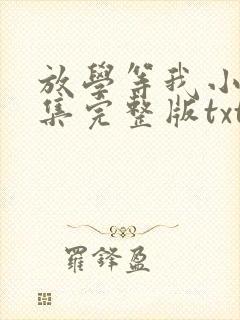 放學等我小
集完整版txt
羅鋒盈